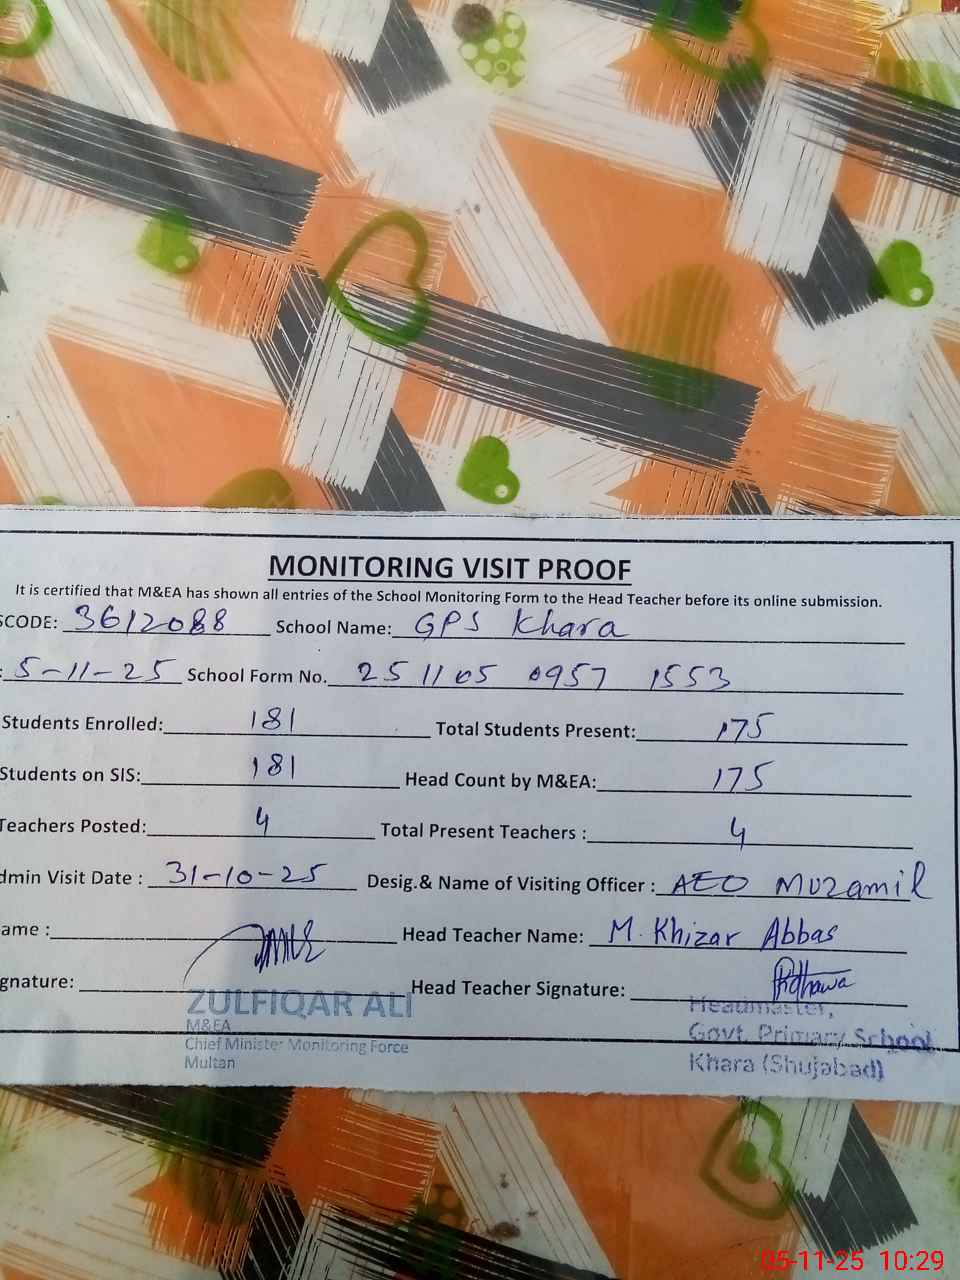 MONITORING VISIT PROOF
It is certified that M&EA has shown all entries of the School Monitoring Form to the Head Teacher before its online submission.
SCODE: 3612088 School Name: GPS Khara
: 5-11-25 School Form No. 251105 0957 1553
Students Enrolled: 181 Total Students Present: 175
Students on SIS: 181 Head Count by M&EA: 175
Teachers Posted: 4 Total Present Teachers : 4
dmin Visit Date : 31-10-25 Desig.& Name of Visiting Officer : AEO Muzamil
ame : Head Teacher Name: M. Khizar Abbas
gnature: Head Teacher Signature:
ZULFIQAR ALI
M&EA
Chief Minister Monitoring Force
Multan
Headmaster,
Govt. Primary School
Khara (Shujabad)
05-11-25 10:29